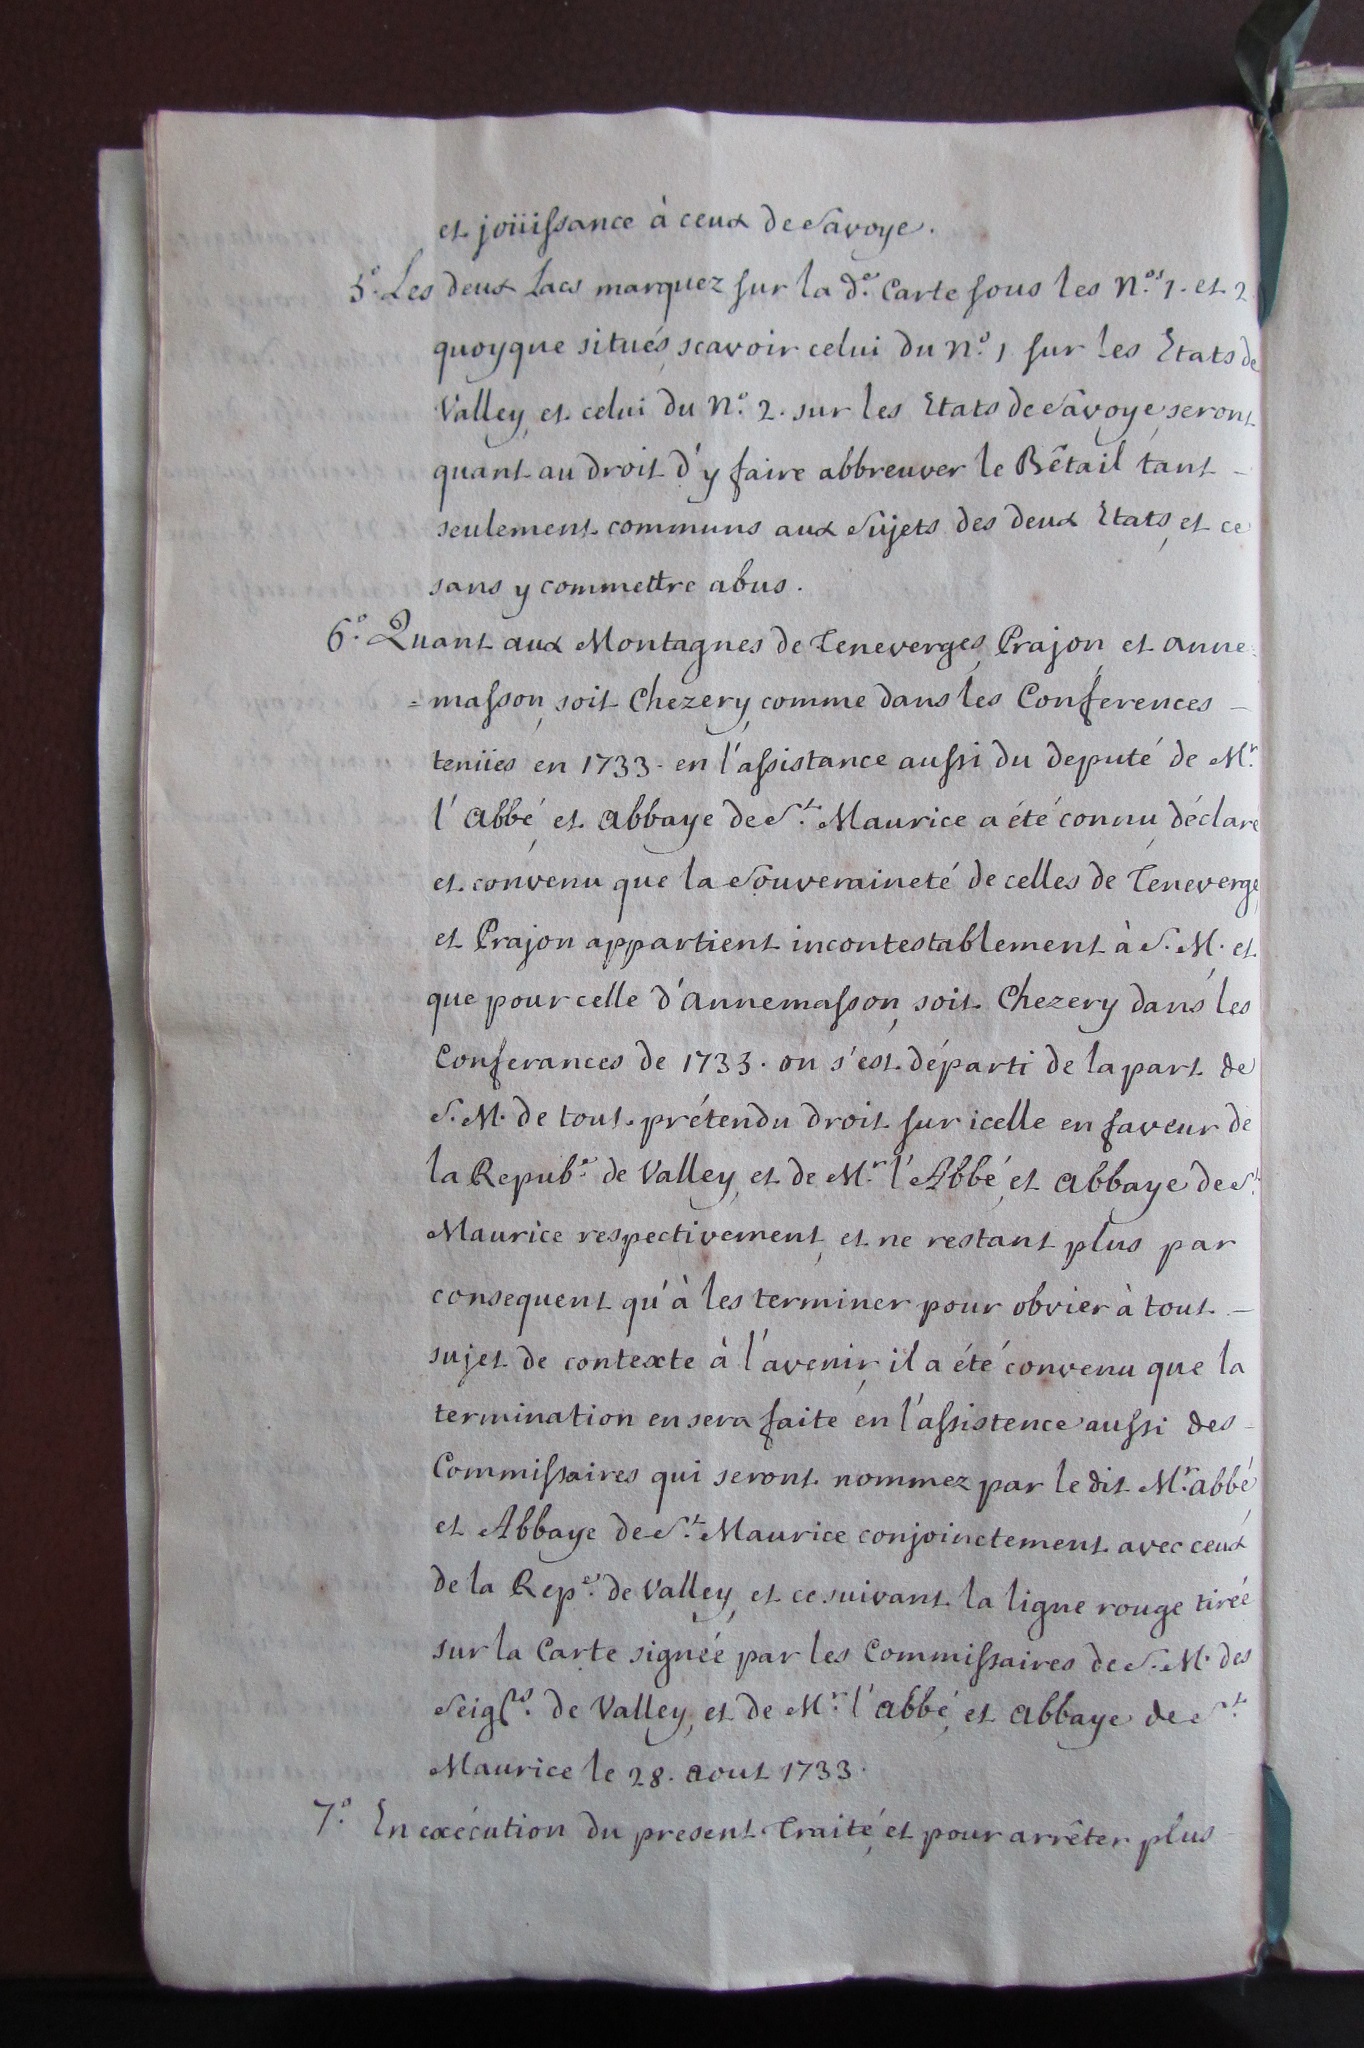 et joüissance à ceux de Savoye.
5.° Les deux Lacs marquez sur la d.e Carte sous les N.os 1. et 2
quoyque situés, scavoir celui du N.° 1 sur les Etats de
Valley, et celui du N.° 2. sur les Etats de Savoye, seront
quant au droit d'y faire abbreuver le Bêtail tant -
seulement communs aux Sujets des deux Etats, et ce
sans y commettre abus.
6.° Quant aux Montagnes de Teneverges, Prajon, et Anne=
=masson, soit Chezery, comme dans les Conferences -
tenües en 1733. en l'assistance aussi du deputé de M.r
l'Abbé, et Abbaye de S.t Maurice a été connu, déclaré
et convenu que la Souveraineté de celles de Teneverge,
et Prajon appartient incontestablement à S. M. et
que pour celle d'Annemasson, soit Chezery dans les
Conferances de 1733. on s'est départi de la part de
S. M. de tout prétendu droit sur icelle en faveur de
la Repub.e de Valley, et de M.r l'Abbé, et Abbaye de S.t
Maurice respectivement, et ne restant plus par
consequent qu'à les terminer pour obvier à tout -
sujet de contexte à l'avenir, il a été convenu que la
termination en sera faite en l'assistence aussi des -
Commissaires qui seront nommez par le dit M.r Abbé
et Abbaye de S.t Maurice conjoinctement avec ceux
de la Rep.e de Valley, et ce suivant la ligne rouge tirée
sur la Carte signée par les Commissaires de S. M. des
Seig.rs de Valley, et de M.r l'Abbé, et Abbaye de S.t
Maurice le 28. Aout 1733.
7.° En exécution du present Traité, et pour arrêter plus -